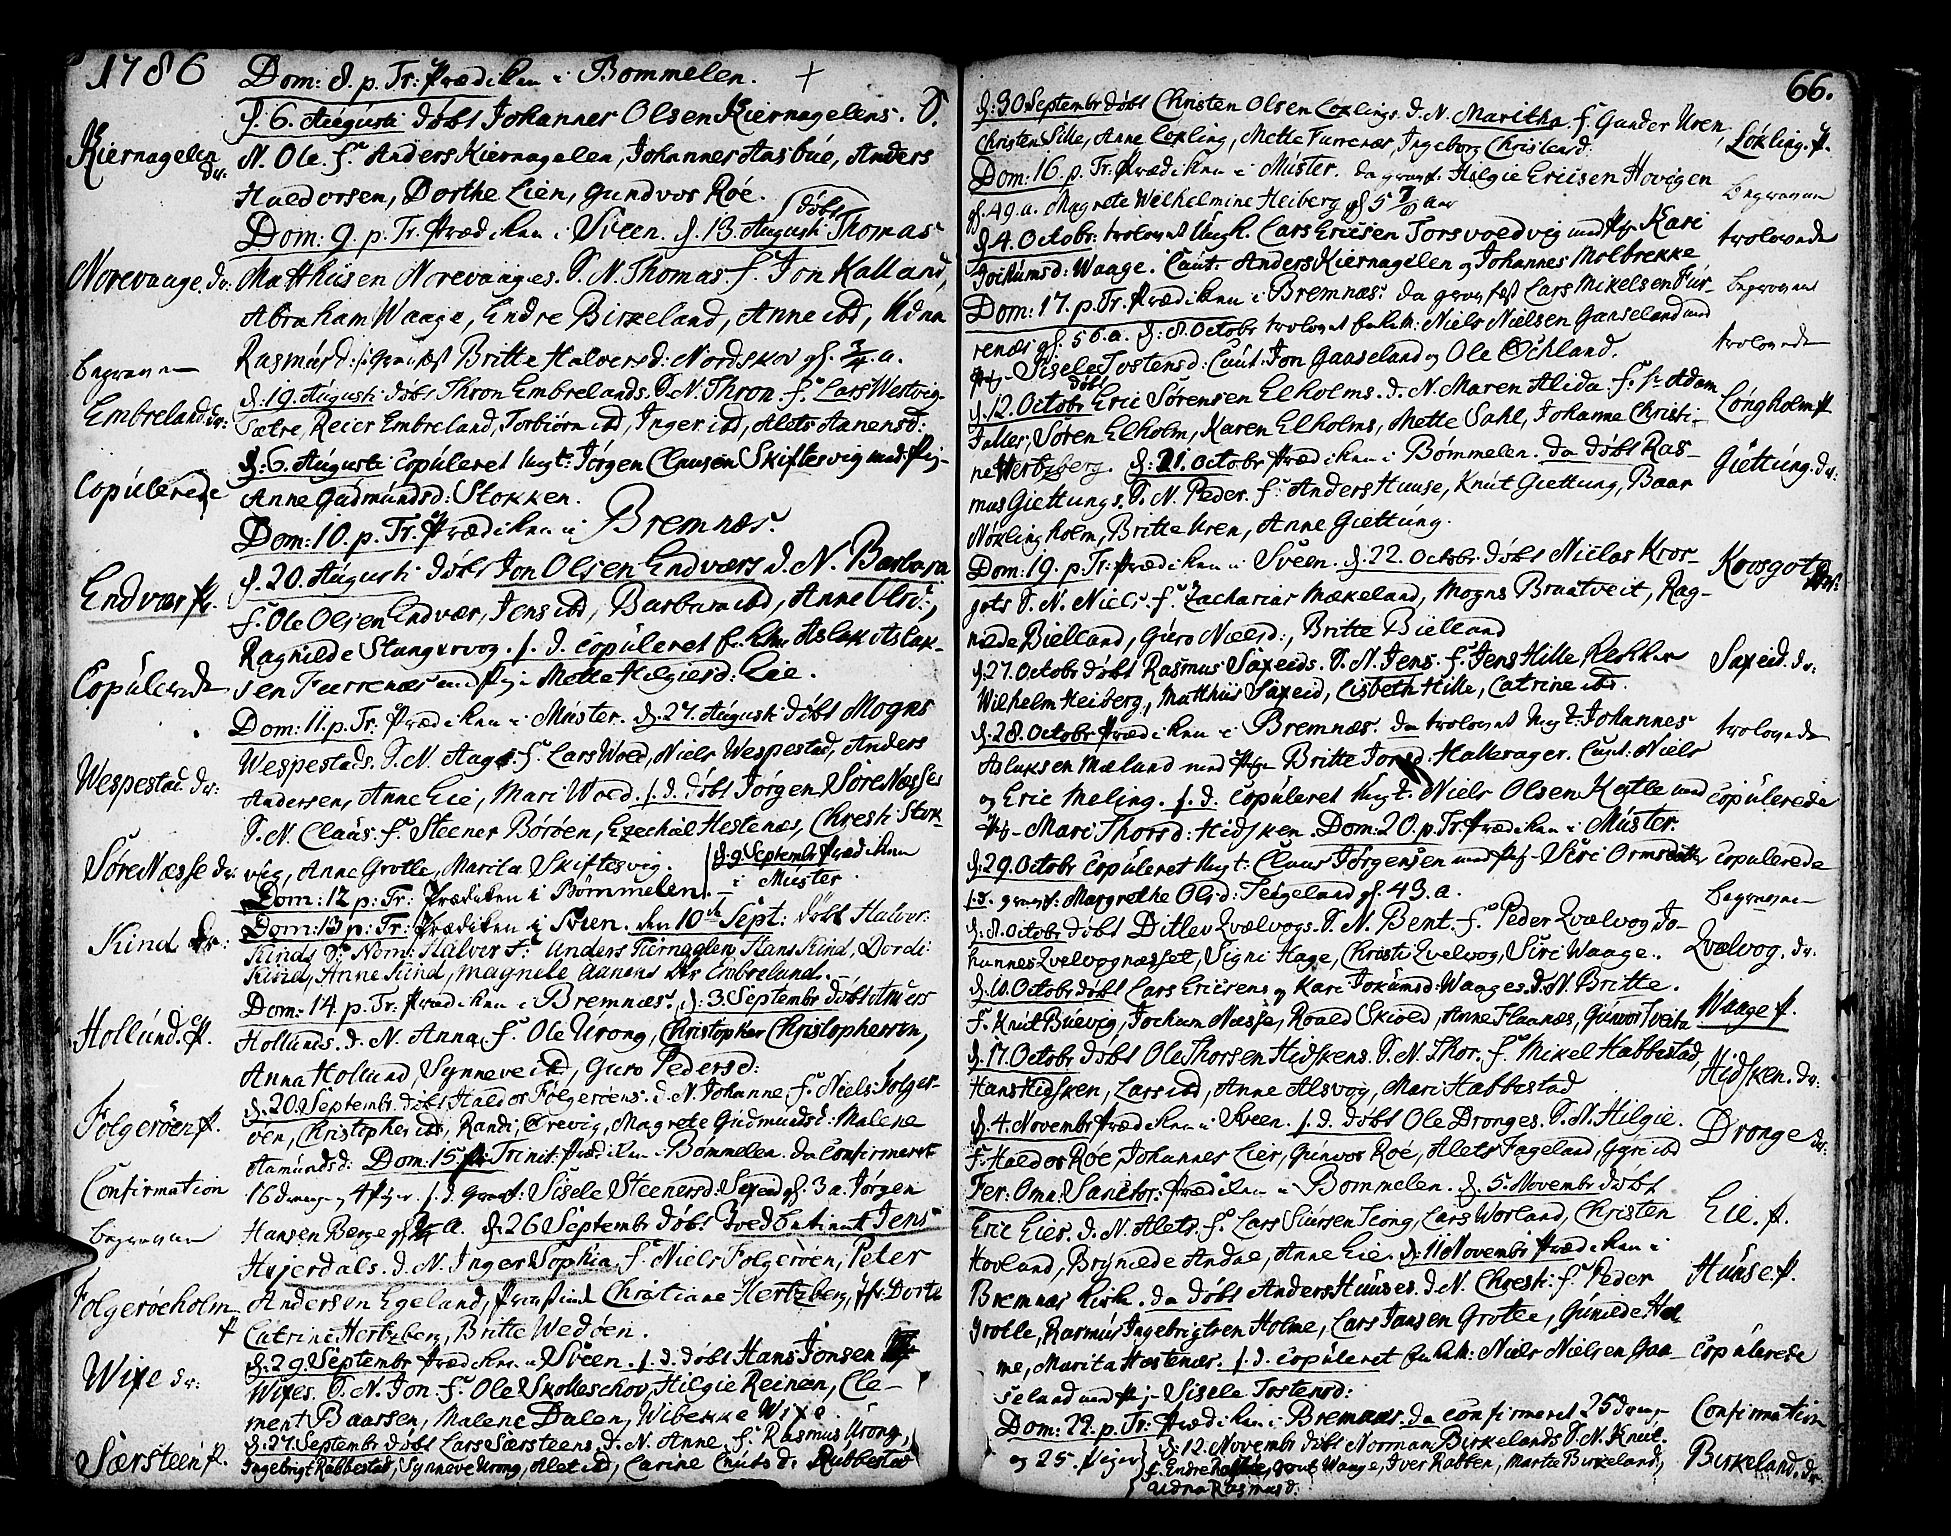 1786 Dom: 8. p. Tr: Prædiken i Bømmelen.
d. 6. Augusti døbt Johannes Olsen Kiernagelens. S.
Kiernagelen dr: N. Ole. f: Anders Kiernagelen, Johannes Aasbüe, Anders
Haldorsen, Dorthe Lien, Gundvor Røe.
Dom: 9. p. Tr. Prædiken i Sveen. d. 13. Augusti døbt Thomas
Norevaage. dr: Matthüsen Norevaages. S. N. Thomas. f. Jon Kalland,
Abraham Waage, Endre Birkeland, Anne ibd, Udna
begraven Rasmüsd: Britte Halversd: Nordskov gl. 3/4 a.
Embreland dr: d. 19. Augusti døbt Thron Embrelands. S. N. Thron. f. Lars Westvig
Sætre, Reier Embreland, Torbiørn ibd, Inger ibd, Alets Aanensd:
copülerede d: 6. Augusti copüleret Ungk: Jørgen Clausen Skiftesvig med Pig
Anne Gudmündsd: Stokken.
Dom: 10. p. Tr. Prædiken i Bremnæs.
Endvær p. d. 20. Augusti døbt Jon Olsen Endværs d. N. Barbara
f. Ole Olsen Endvær, Jens ibd, Barbara ibd,
Ragnilde Stangervog. s. d. copüleret Aslak Aslak-
Copülerede sen Fürrenæs med Mette Helgiesd: Eie.
Dom: 11. p. Tr. Prædiken i Müster. d: 27. Augusti døbt Mogns
Wespestad. dr: Wespestads. S. N. Aage. f. Lars Wold, Niels Wespestad, Anders
Andersen, Anne Eie, Mari Wold. s. d. døbt Jørgen Søre Næsses
S. N. Claus. f. Steener Børøen, Ezechiel Hestenæs, Christi Stok-
Søre Næsse dr: vig, Anne Grotle, Marita Skiftesvig. d. 9. Septembr Prædiken
i Müster
Dom: 12 p: Tr: Prædiken i Bømmelen.
Kind dr: Dom: 13 p: Tr: Prædiken i Sveen. den 10de Sept: døbt Halver:
Kinds S: Nom: Halver f: Anders Kiernaglen, Hans Kind, Dordi:
Kind, Anne Kind, Magnele Aanens dtr Embreland.
Dom: 14. p. Tr. Prædiken i Bremnæs. d. 3. Septembr døbt Anders
Hollünd. p. Hollünds. d. N. Anna. f. Ole Urong, Christopher Christophersen,
Anna Hollünd, Synneve ibd, Guro Pedersd:
Folgerøen p. d. 20. Septembr. døbt Haldor Folgerøens. d. N. Johanne f. Niels Folger-
øen, Christopher ibd, Randi Trevig, Magrete Gudmündsd: Malene
Aamündsd: Dom: 15. p. Trinit. Prædiken i Bømmelen. da confirmeret
Confirmation 16 drenge og 4 Piger. s. d. gravf: Sisele Steenersd: Saxeid gl. 3 a. Jørgen
begraven Hansen Børge a. d: 26 Septembr døbt Jens
Hvjerdals. d. N. Inger Sophia. f. Niels Folgerøen, Peter
Folgerøeholm p Andersen Egeland, Christiane Hertzberg, Dorte
Catrine Hertzberg, Britte Wedøen.
d: 29. Septembr Prædiken i Sveen. s. d. døbt Hans Jonsen
Wixe dr: Wixes. S. N. Jon. f. Ole Skolleschov, Hilgie Reinen, Cle-
ment Baarsen, Malene Dalen, Wibekke Wixe
Særsteen p. d: 27. Septembr døbt Lars Særsteens. d. N. Anne. f. Rasmus Urong,
Ingebrigt Røbbestad, Synneve Urong, Alet ibd, Carine Cnuts d: Rübbestad
66.
d: 30 Septembr døbt Christen Olsen Løklings. d. N. Maritha. f. Gunder Uren,
Christen Sille, Anne Løkling, Mette Furrenæs, Ingeborg Christensd: Løkling. p.
Dom: 16. p. Tr. Prædiken i Müster. da gravf. Hilgie Ericsen Hovigen
gl. 49. a. Magrete Wilhelmine Heiberg gl 5 aar begraven
d. 4. Octobr. trolovet Ungk. Lars Ericsen Torsvoldvig med Kari trolovede
Jochümsd: Waage. Caut: Anders Kiernagelen og Johannes Molbrekke
Dom: 17. p. Tr. Prædiken i Bremnæs. da gravfæst Lars Mikelsen Für- begraven
renæs gl. 56. a. d: 8. Octobr trolovet Niels Nielsen Gaaseland med
Sisele Tostensd: Caut. Jon Gaaseland og Ole Øchland. trolovede
d. 12. Octobr døbt Eric Sørensen Elholms. d. N. Maren Alida. f. Adam
Falles, Søren Elholm, Karen Elholms, Mette Sahl, Johanne Christi- Longholm p
ne Hertzberg. d: 21. Octobr Prædiken i Bømmelen. da døbt Ras-
mus Giettungs. S. N. Peder. f. Anders Huuse, Knüt Giettung, Baar Giettung. dr:
Nøklingholm, Britte Uren, Anne Giettung.
Dom: 19. p. Tr. Prædiken i Sveen. d. 22. Octobr døbt Niclas Kros-
gots S. N. Niels. f. Zacharias Mækeland, Mogns Braatveit, Rag- Krosgot
nilde Bielland, Giøro Nielsd:, Britte Bielland
d. 27. Octobr døbt Rasmus Saxeids. S. N. Jens. f. Jens Hille Saxeid. dr:
Wilhelm Heiberg, Matthüs Saxeid, Lisbeth Hille, Catrine ibd.
d. 28. Octobr Prædiken i Bremnæs. da trolovet Ungk: Johannes trolovede
Aslaksen Mæland med Britte Jonsd: Hallerager. Caut: Niels
og Eric Meling. s. d. copüleret Ungk: Niels Olsen Katle med copülerede
Mari Thorsd: Hidsken. Dom: 20. p. Tr. Prædiken i Müster.
d. 29. Octobr copüleret Ungk: Claus Jørgensen med Pig. Siri Ormsdatter copülerede
s. d. gravf: Margrethe Olsd: Teigeland gl. 43. a. begraven
d: 8. Octobr døbt Ditlev Qvælvogs. S. N. Bent. f. Peder Qvælvog Jo-
hannes Qvelvognæsset, Signi Hage, Christi Qvelvog, Siri Waage. Qvælvog. dr.
d. 10. Octobr døbt Lars Ericsens og Kari Jokümsd: Waages. d. N. Britte.
f. Knüt Büevig, Jochum Næsse, Roald Skiold, Anne Flaanæs, Günvor Tveita Waage p.
d. 17. Octobr døbt Ole Thorsen Hidskens. S. N. Thor. f. Mikel Habbestad,
Hans Hidsken, Lars ibd, Anne Alsvog, Mari Habbestad Hidsken. dr:
d. 4. Novembr Prædiken i Sveen. s. d. døbt Ole Dronges. S. N. Hilgie.
f. Haldor Røe, Johannes Lier, Günvor Røe, Alets Fageland, Gyri ibd Dronge dr:
Fer: Omn: Sanctor: Prædiken i Bømmelen. d. 5. Novembr døbt
Eric Eies. d. N. Alets. f. Lars Siursen Teong, Lars Worland, Christen Eie. p.
Hovland, Brynilde Andal, Anne Eie. d: 11 Novembr Prædiken i
Bremnæs Kirke. da døbt Anders Hüuses. d. N. Christi: f. Peder Hüuse. p.
Grotle, Rasmüs Ingebrigtsen Holme, Lars Jansen Grotle, Günilde Hol
me, Marita Hæstenæs. s. d. copüleret Niels Nielsen Gaa- copülerede
seland med Pig- Sisele Tostensd:
Dom: 22. p. Tr: Prædiken i Bremnæs. da confirmeret 25 drenge Confirmation
og 25. Piger d: 12. Novembr døbt Norman Birkelands S. N. Knüt.
f. Endre Waage, Iver Rabben, Marta Birkeland, Birkeland. dr.
Udna Rasmusd: